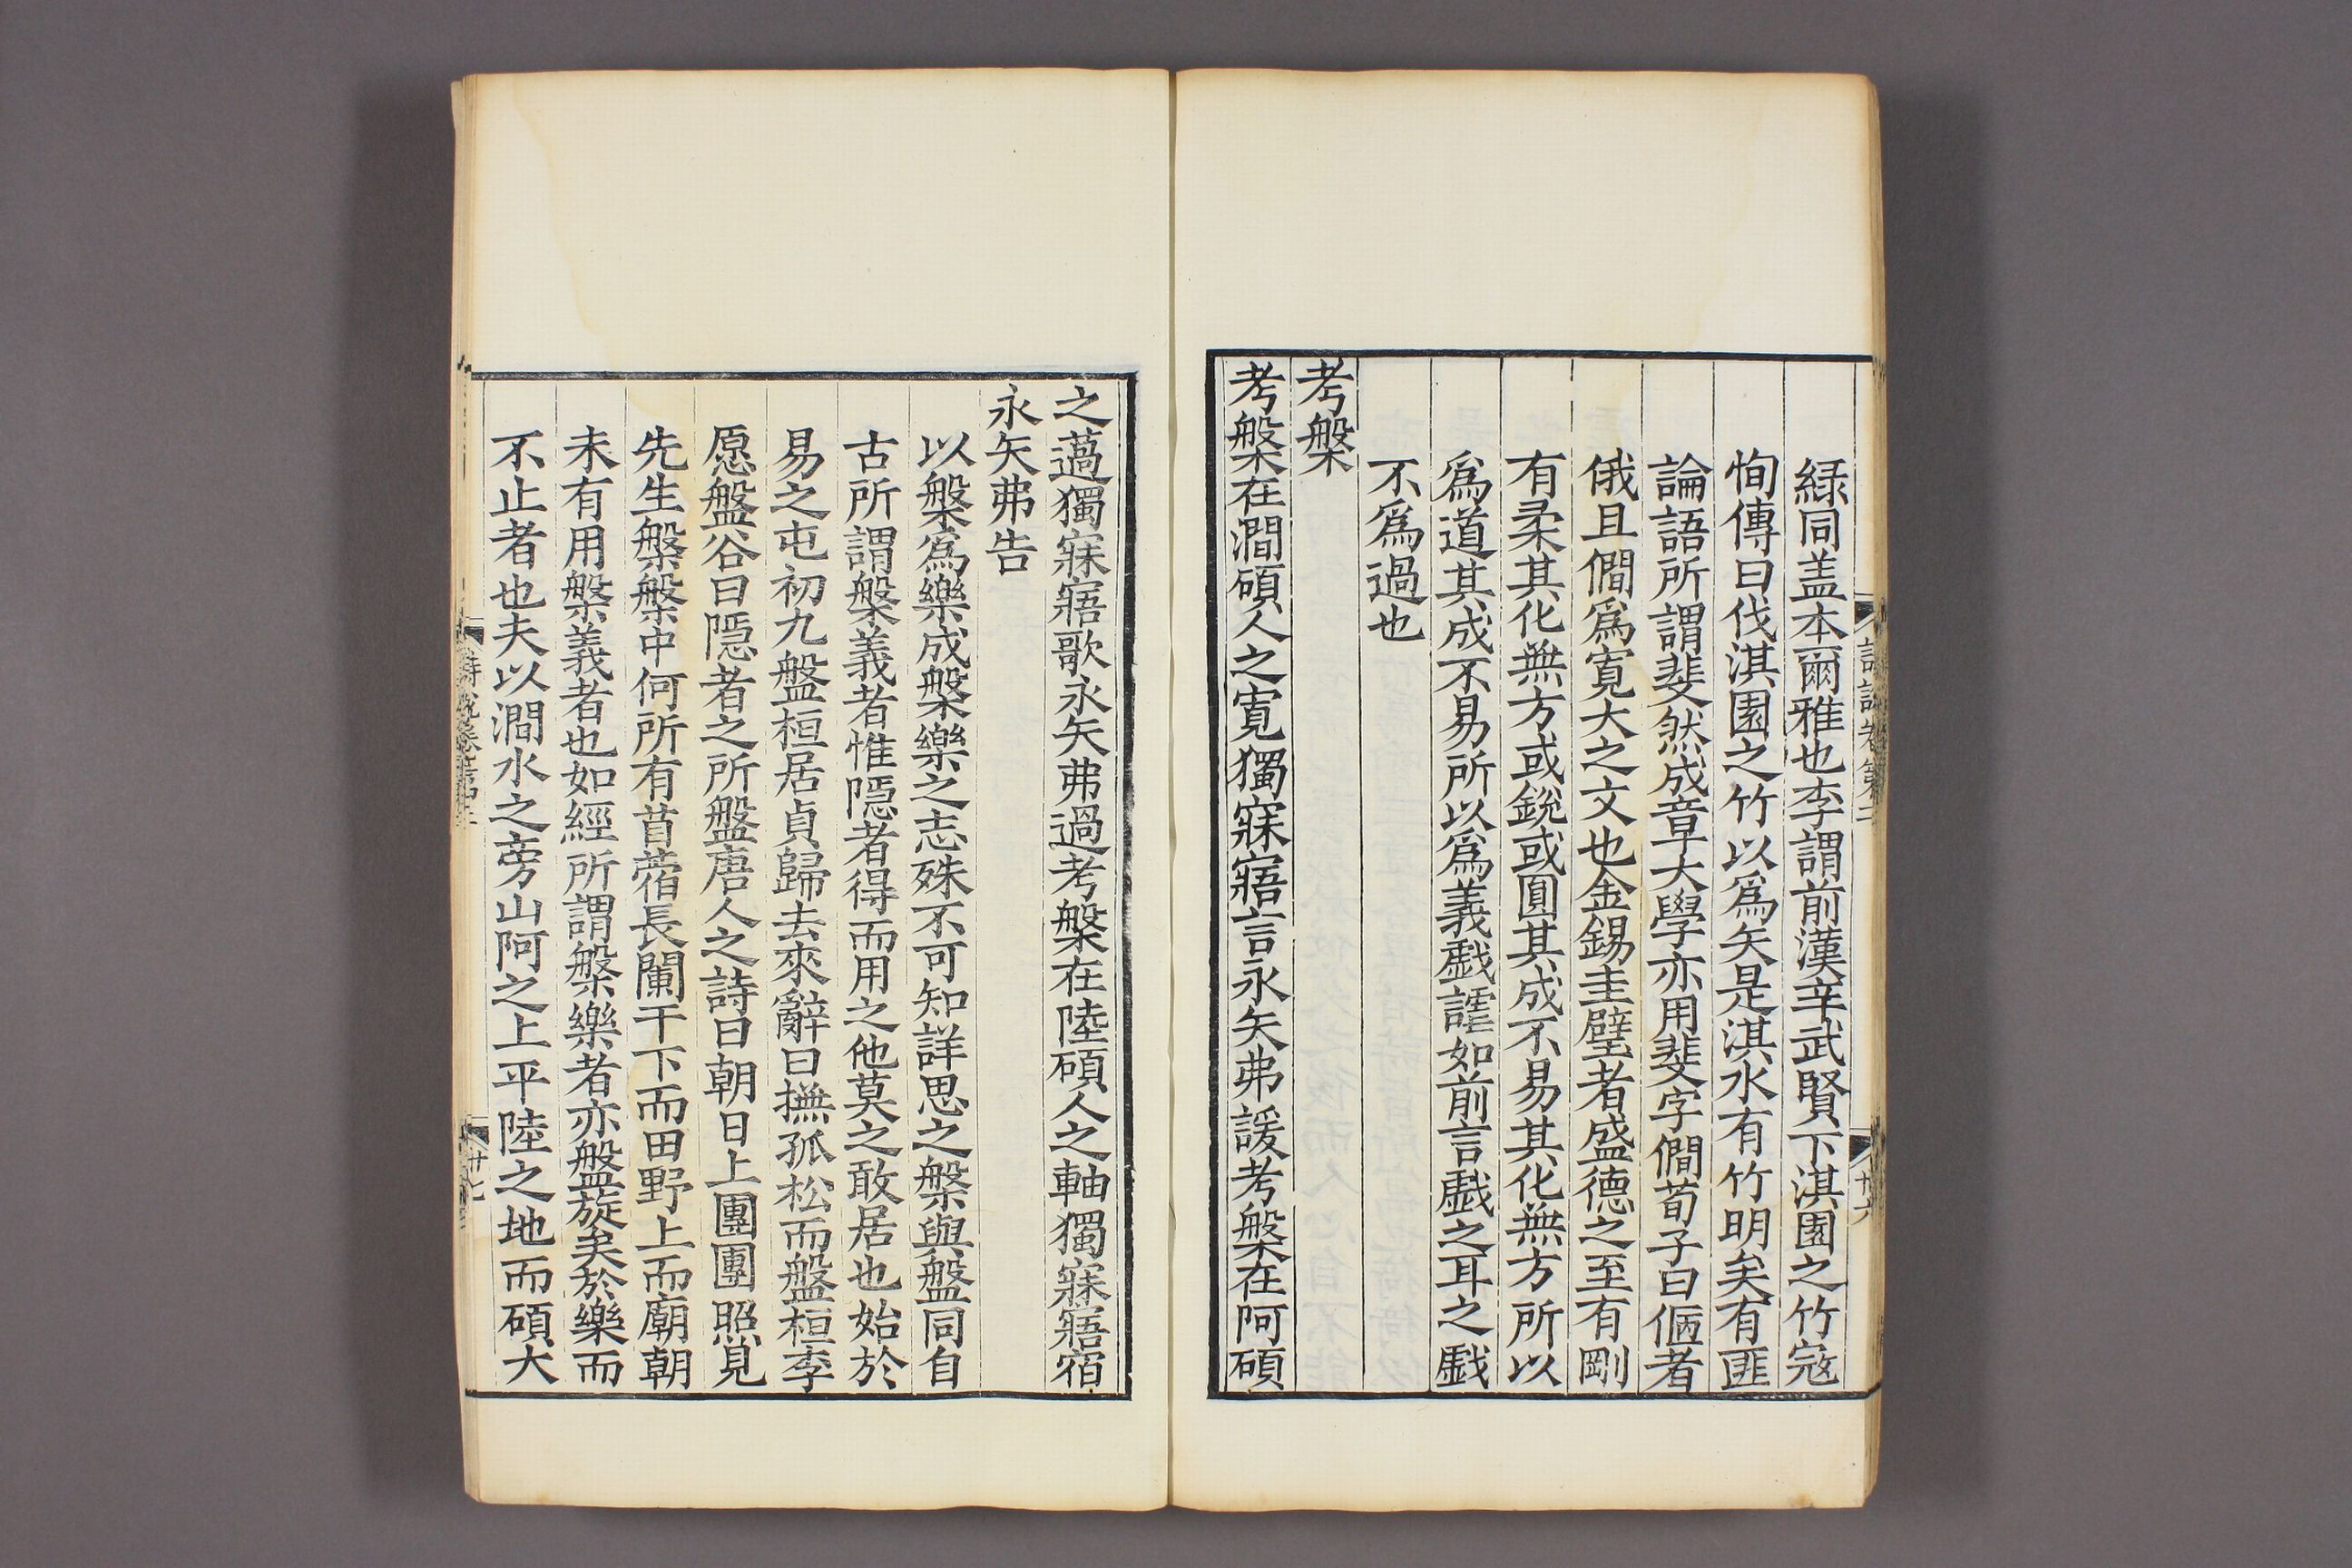 緑同盖本爾雅也李謂前漢辛武賢下淇園之竹寇
恂傳曰伐淇園之竹以爲矢是淇水有竹明矣有匪
論語所謂斐然成章大學亦用斐字僩荀子曰傴者
俄且僩爲寬大之文也金錫圭璧者盛德之至有剛
有柔其化無方或銳或圓其成不易其化無方所以
爲道其成不易所以爲義戲謔如前言戲之耳之戲
不爲過也
考槃
考槃在澗碩人之寬獨寐寤言永矢弗諼考槃在阿碩
詩說卷第二
廿六
之薖獨寐寤歌永矢弗過考槃在陸碩人之軸獨寐寤宿
永矢弗告
以槃爲樂成槃樂之志殊不可知詳思之槃與盤同自
古所謂槃義者惟隱者得而用之他莫之敢居也始於
易之屯初九盤桓居貞歸去來辭曰撫孤松而盤桓李
愿盤谷曰隱者之所盤唐人之詩曰朝日上團團照見
先生槃槃中何所有苜蓿長闌干下而田野上而廟朝
未有用槃義者也如經所謂槃樂者亦盤旋矣於樂而
不止者也夫以澗水之旁山阿之上平陸之地而碩大
詩說卷第二
廿七